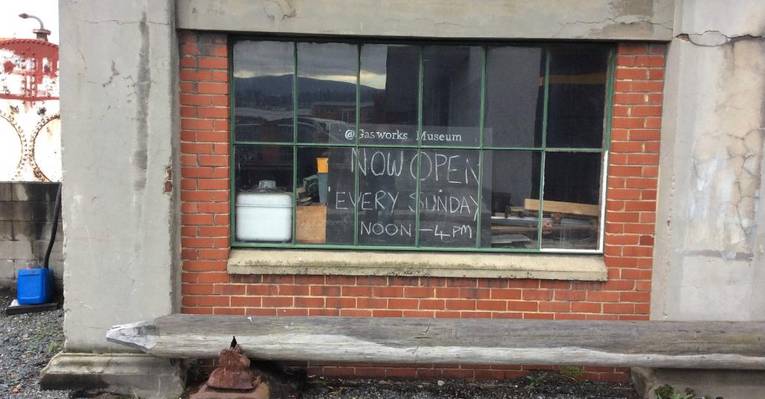 @Gasworks Museum
NOW OPEN
EVERY SUNDAY
NOON - 4PM